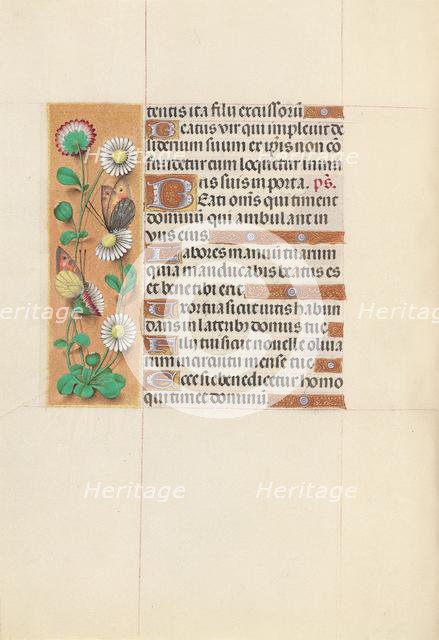 tentis ita filii excussorū
Beatus vir qui impleuit de
siderium suum ex ip̄is non cō
fundetur cum loquetur inimi
cis suis in porta. ps̄.
Beati om̄s qui timent
dominū qui ambulant in
viis eius.
Labores manuū tuarum
quia manducabis beatus es
et bene tibi erit.
Uxor tua sicut vitis habun
dans in laterib; domus tue
Filii tui sicut nouelle oliua
rum in circuitu mense tue
Ecce sic benedicetur homo
qui timet dominū.
Heritage
Heritage
Heritage
Heritage
Heritage
Heritage